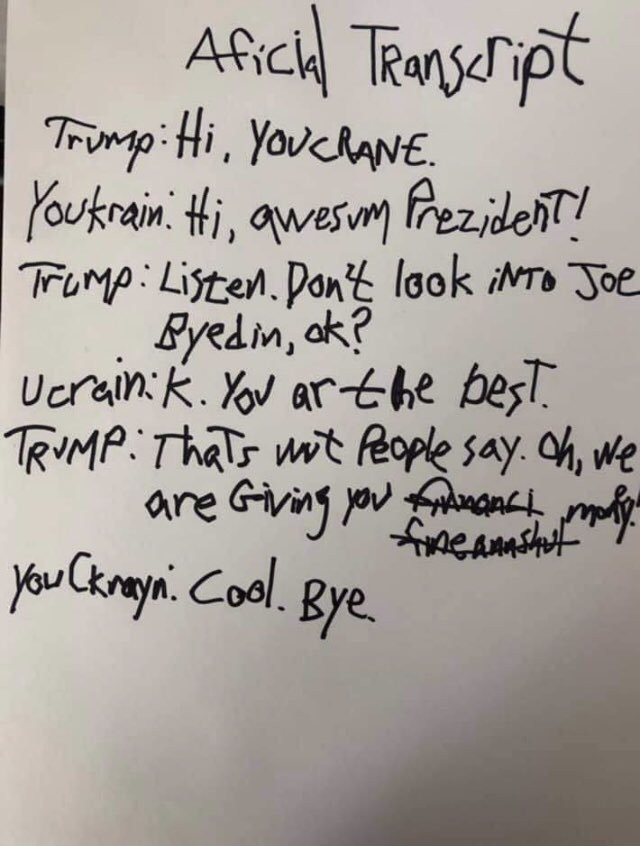 Aficial Transcript
Trump: Hi, YOUCRANE.
Youkrain: Hi, awesum Prezident!
Trump: Listen. Don't look iNTo Joe
Byedin, ok?
Ucrain: K. You ar the best.
TRUMP: Thats wut People say. Oh, we
are Giving you
Cool. Bye.